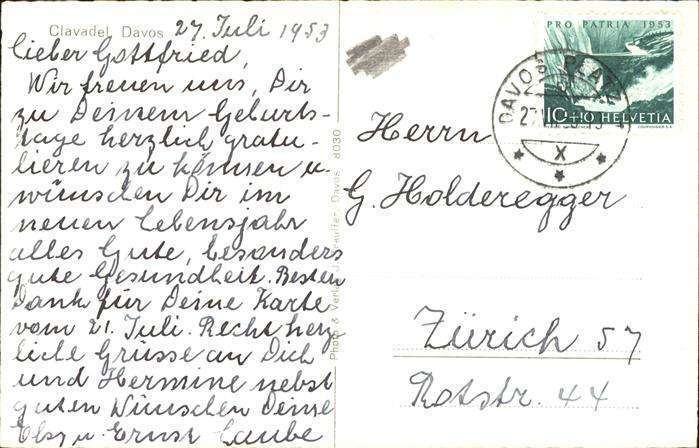 Clavadel Davos 27. Juli 1953
Lieber Gottfried,
Wir freuen uns, Dir
zu Deinem Geburts-
tage herzlich gratu-
lieren zu können u.
wünschen Dir im
neuen Lebensjahr
alles Gute, besonders
gute Gesundheit. Besten
Dank für Deine Karte
vom 21. Juli. Recht herz
liche Grüsse an Dich
und Hermine nebst
guten Wünschen Deine
Elsy u. Ernst Laube
Photo & Verlag Davos 8030
PRO PATRIA 1953
10+10 HELVETIA
DAVOS PLATZ
X
Herrn
G. Holderegger
Zürich 57
Rotstr. 44